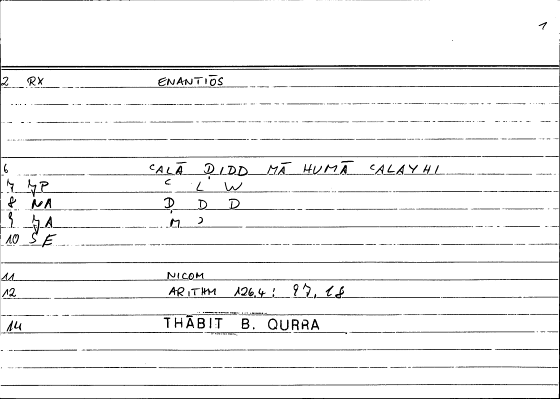 1
2 RX ENANTIŌS
6 ʿALĀ ḌIDD MĀ HUMĀ ʿALAYHI
7 JP ʿ L W
8 NA Ḍ D D
9 JA M
10 SE
11 NICOM
12 ARITHM 126,4: 97,18
14 THĀBIT B. QURRA